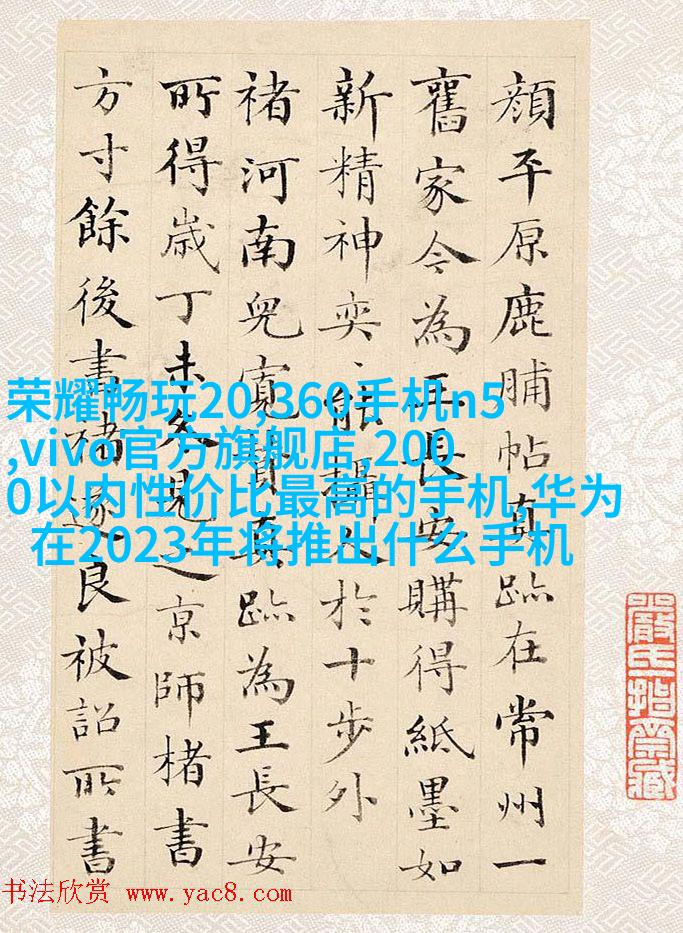 顔平原鹿脯帖真跡在常州一
舊家今為王長安購得紙墨如
新精神奕、能攝人於十步外
褚河南兒寬贊真跡為王長安
所得歲丁未余見之京師楮書
方寸餘後書褚遂良被詔所書
荣耀畅玩20,360手机n5
,vivo官方旗舰店,200
0以内性价比最高的手机,华为
在2023年将推出什么手机
书法欣赏 www.yac8.com